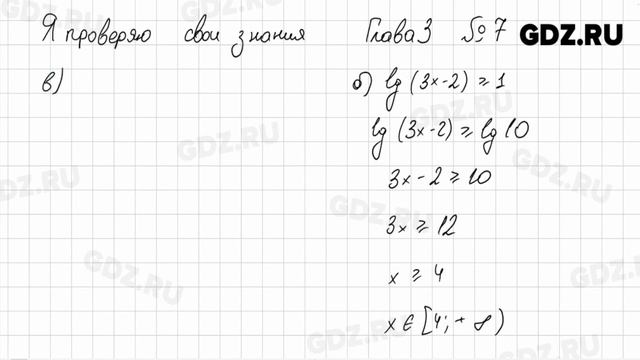 Я проверяю свои знания Глава 3 № 7
GDZ.RU
в)
б) lg (3x-2) ≥ 1
lg (3x-2) ≥ lg 10
3x - 2 ≥ 10
3x ≥ 12
x ≥ 4
x ∈ [4; + ∞)
GDZ.RU
GDZ.RU
GDZ.RU
GDZ.RU
GDZ.RU
GDZ.RU
GDZ.RU